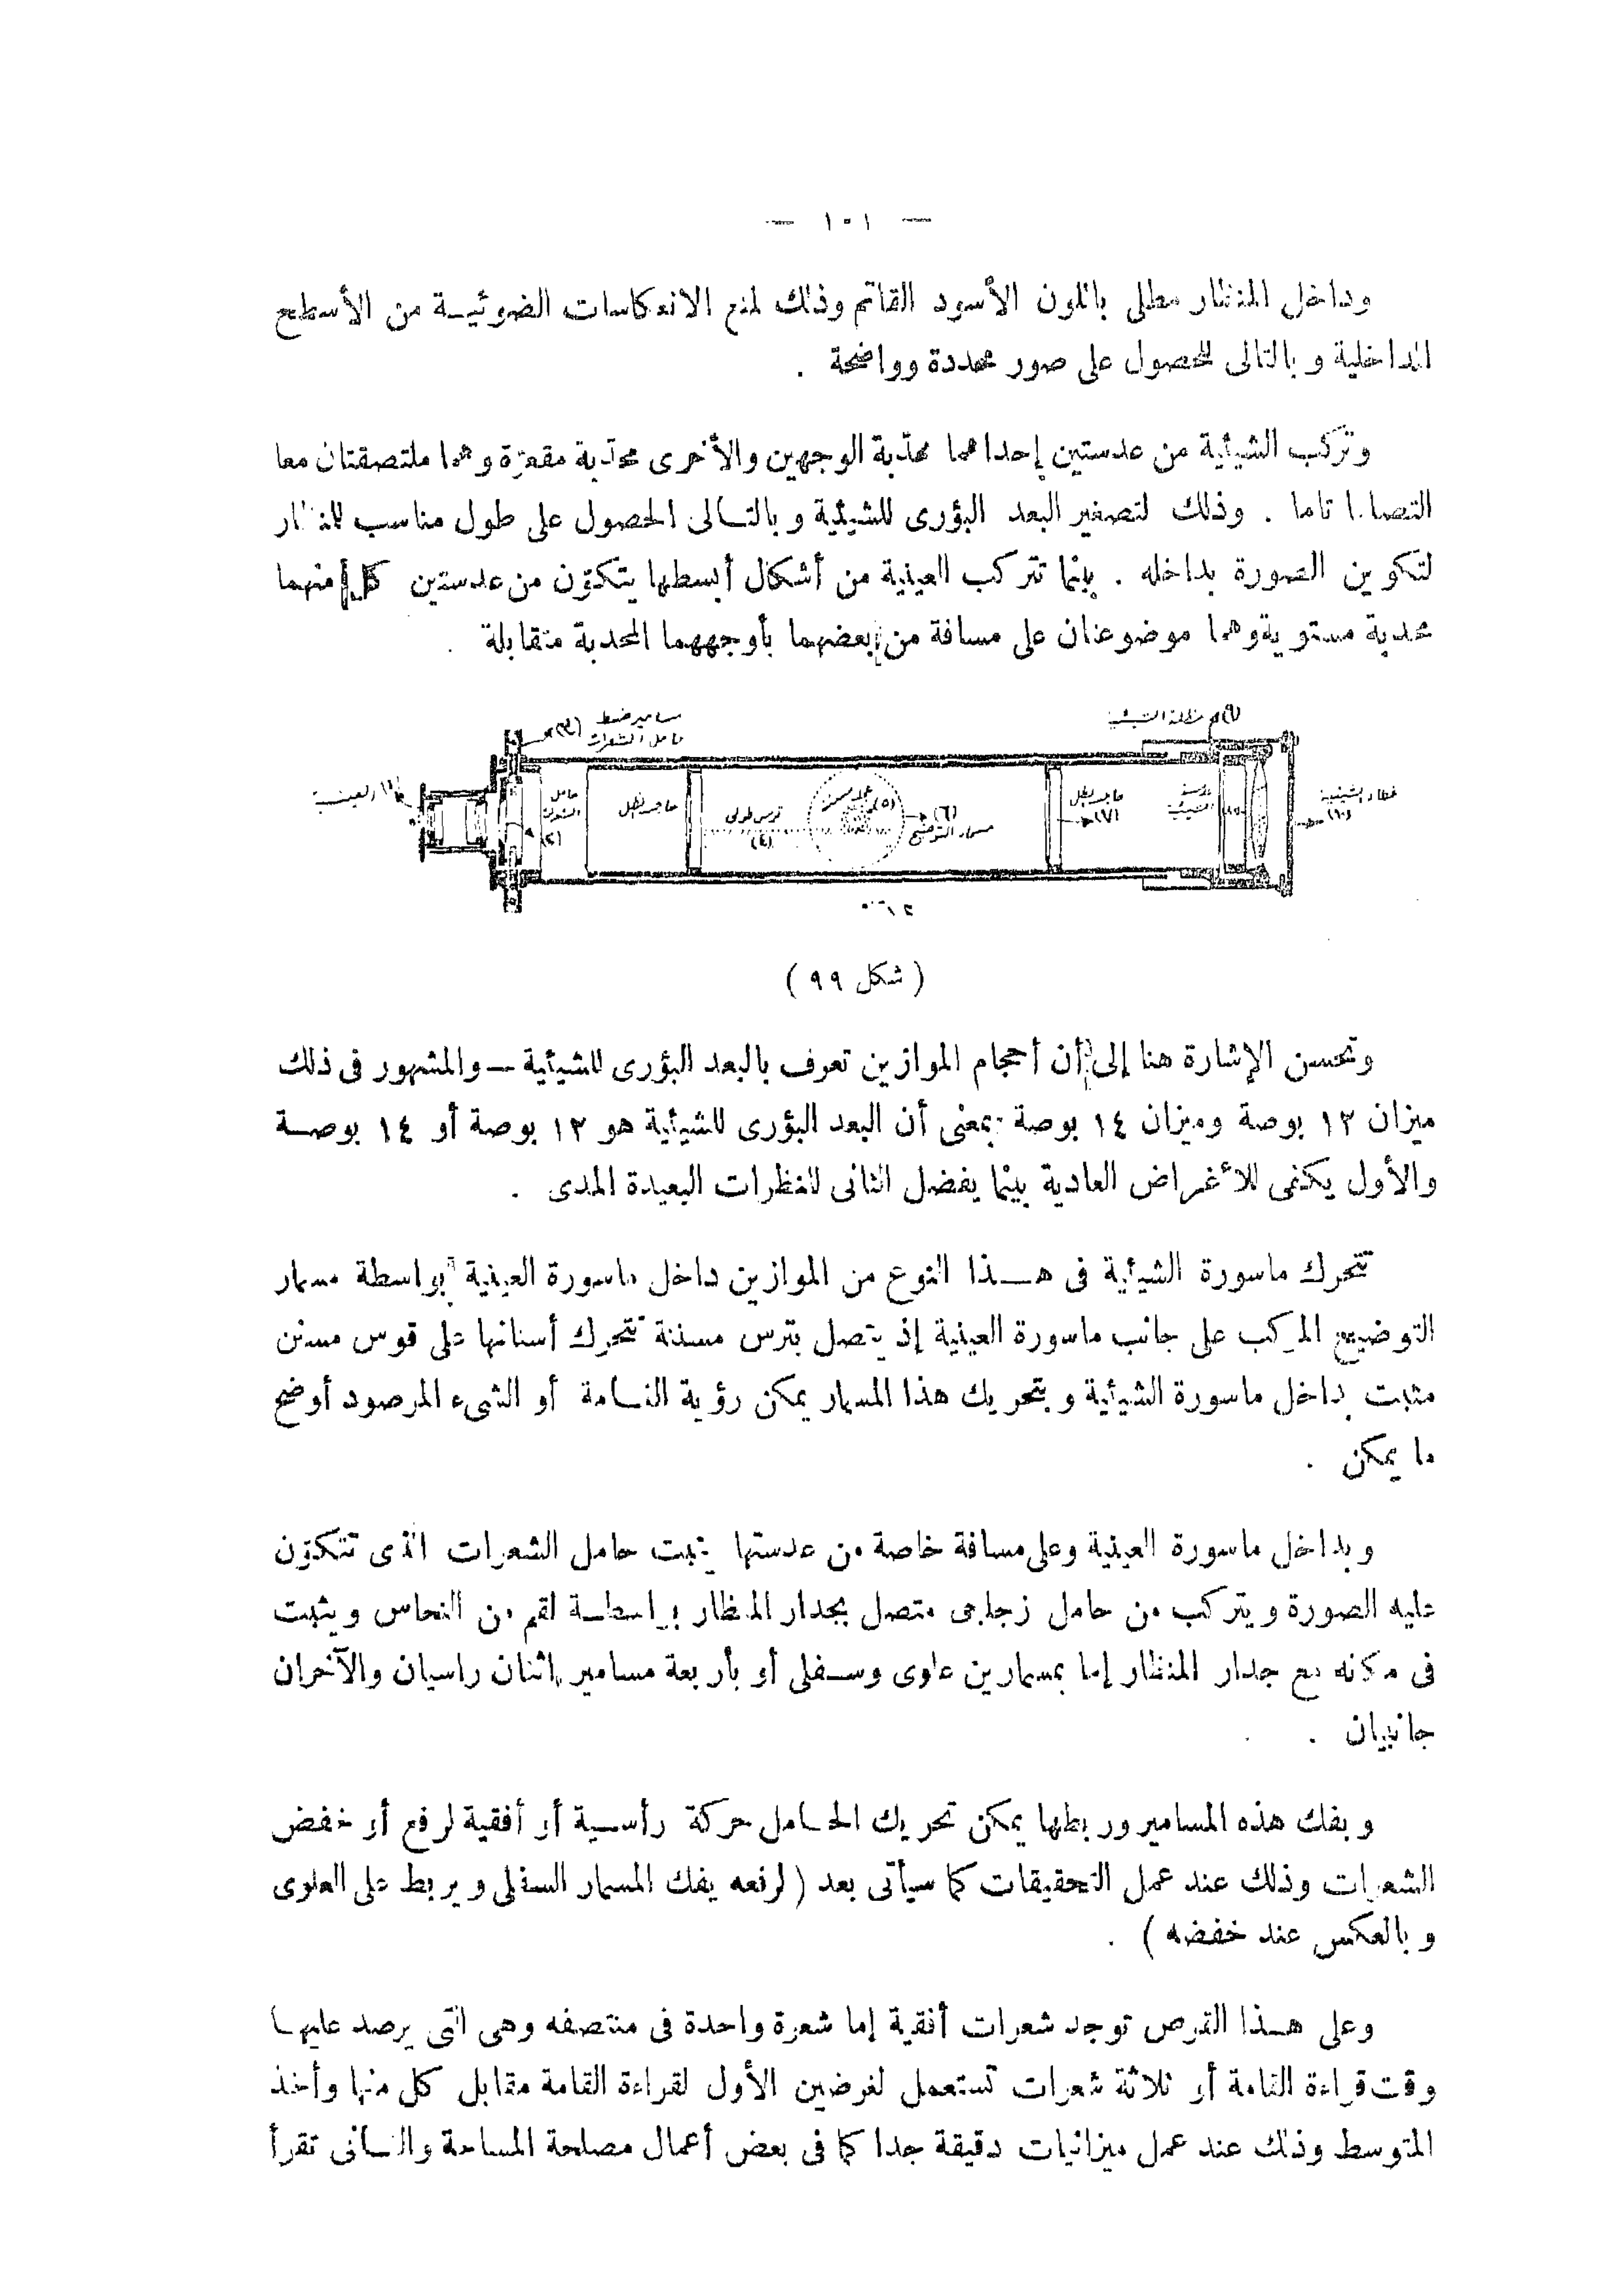 — ١٠١ —
وداخل المنظار مطلى باللون الأسود القاتم وذلك لمنع الانعكاسات الضوئيـة من الأسطح
الداخلية وبالتالى للحصول على صور محددة وواضحة .
وتركب الشيئية من عدستين إحداهما محدّبة الوجهين والأخرى محدّبة مقعرة وهما ملتصقتان معا
التصاقا تاما . وذلك لتصغير البعد البؤرى للشيئية وبالتـالى الحصول على طول مناسب للمنظار
لتكوين الصورة بداخله . بينما تتركب العينية من أشكال أبسطها يتكوّن من عدستين كل منهما
محدبة مستوية وهما موضوعتان على مسافة من بعضهما بأوجههما المحدبة متقابلة .
(٩) مظلة الشيئية
مسامير ضبط
حامل الشعرات (٣)
(١) العينية
حامل الشعرات
(٢)
حاجب للظل
ترس طولى
(٤)
عدسة
(٥)
(٦)
مسمار التوضيح
حاجب للظل
(٧)
عدسة الشيئية
(٨)
غطاء الشيئية
(١٠)
( شكل ٩٩ )
وتحسن الإشارة هنا إلى أن أحجام الموازين تعرف بالبعد البؤرى للشيئية — والمشهور فى ذلك
ميزان ١٢ بوصة وميزان ١٤ بوصة بمعنى أن البعد البؤرى للشيئية هو ١٢ بوصة أو ١٤ بوصـة
والأول يكفى للأغراض العادية بينما يفضل الثانى للنظرات البعيدة المدى .
تتحرك ماسورة الشيئية فى هـذا النوع من الموازين داخل ماسورة العينية بواسطة مسمار
التوضيح المركب على جانب ماسورة العينية إذ يتصل بترس مسننة تتحرك أسنانها على قوس مسنن
مثبت بداخل ماسورة الشيئية وبتحريك هذا المسمار يمكن رؤية القـامة أو الشىء المرصود أوضح
ما يمكن .
وبداخل ماسورة العينية وعلى مسافة خاصة من عدستها يثبت حامل الشعرات الذى تتكوّن
عليه الصورة ويتركب من حامل زجاجى متصل بجدار المنظار بواسطـة لقم من النحاس ويثبت
فى مكانه مع جدار المنظار إما بمسمارين علوى وسـفلى أو بأربعة مسامير اثنان راسيان والآخران
جانبيان .
وبفك هذه المسامير وربطها يمكن تحريك الحـامل حركة رأسـية أو أفقية لرفع أو خفض
الشعرات وذلك عند عمل التحقيقات كما سيأتى بعد ( لرفعه يفك المسمار السفلى ويربط على العلوى
وبالعكس عند خفضه ) .
وعلى هـذا القرص توجد شعرات أفقية إما شعرة واحدة فى منتصفه وهى التى يرصد عليهـا
وقت قراءة القامة أو ثلاثة شعرات تستعمل لغرضين الأول لقراءة القامة مقابل كل منها وأخذ
المتوسط وذلك عند عمل ميزانيات دقيقة جدا كما فى بعض أعمال مصلحة المساحة والثـانى تقرأ